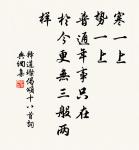 寒一上
勢一上
普通年事只在
於今更無三般兩
樣
釋道璨偈頌十八首詞
典網集